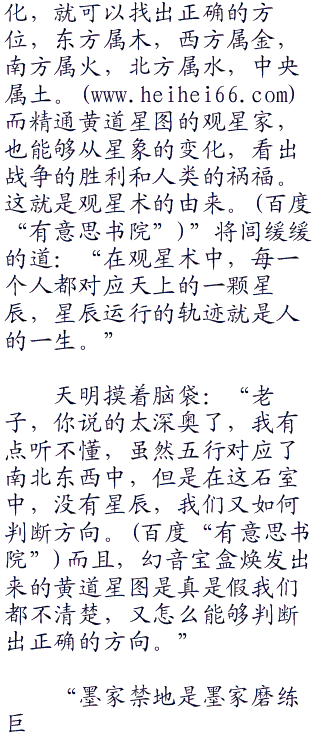 化，就可以找出正确的方
位，东方属木，西方属金，
南方属火，北方属水，中央
属土。(www.heihei66.com)
而精通黄道星图的观星家，
也能够从星象的变化，看出
战争的胜利和人类的祸福。
这就是观星术的由来。(百度
“有意思书院”)”将闾缓缓
的道：“在观星术中，每一
个人都对应天上的一颗星
辰，星辰运行的轨迹就是人
的一生。”
天明摸着脑袋：“老
子，你说的太深奥了，我有
点听不懂，虽然五行对应了
南北东西中，但是在这石室
中，没有星辰，我们又如何
判断方向。(百度“有意思书
院”)而且，幻音宝盒焕发出
来的黄道星图是真是假我们
都不清楚，又怎么能够判断
出正确的方向。”
“墨家禁地是墨家磨练
巨